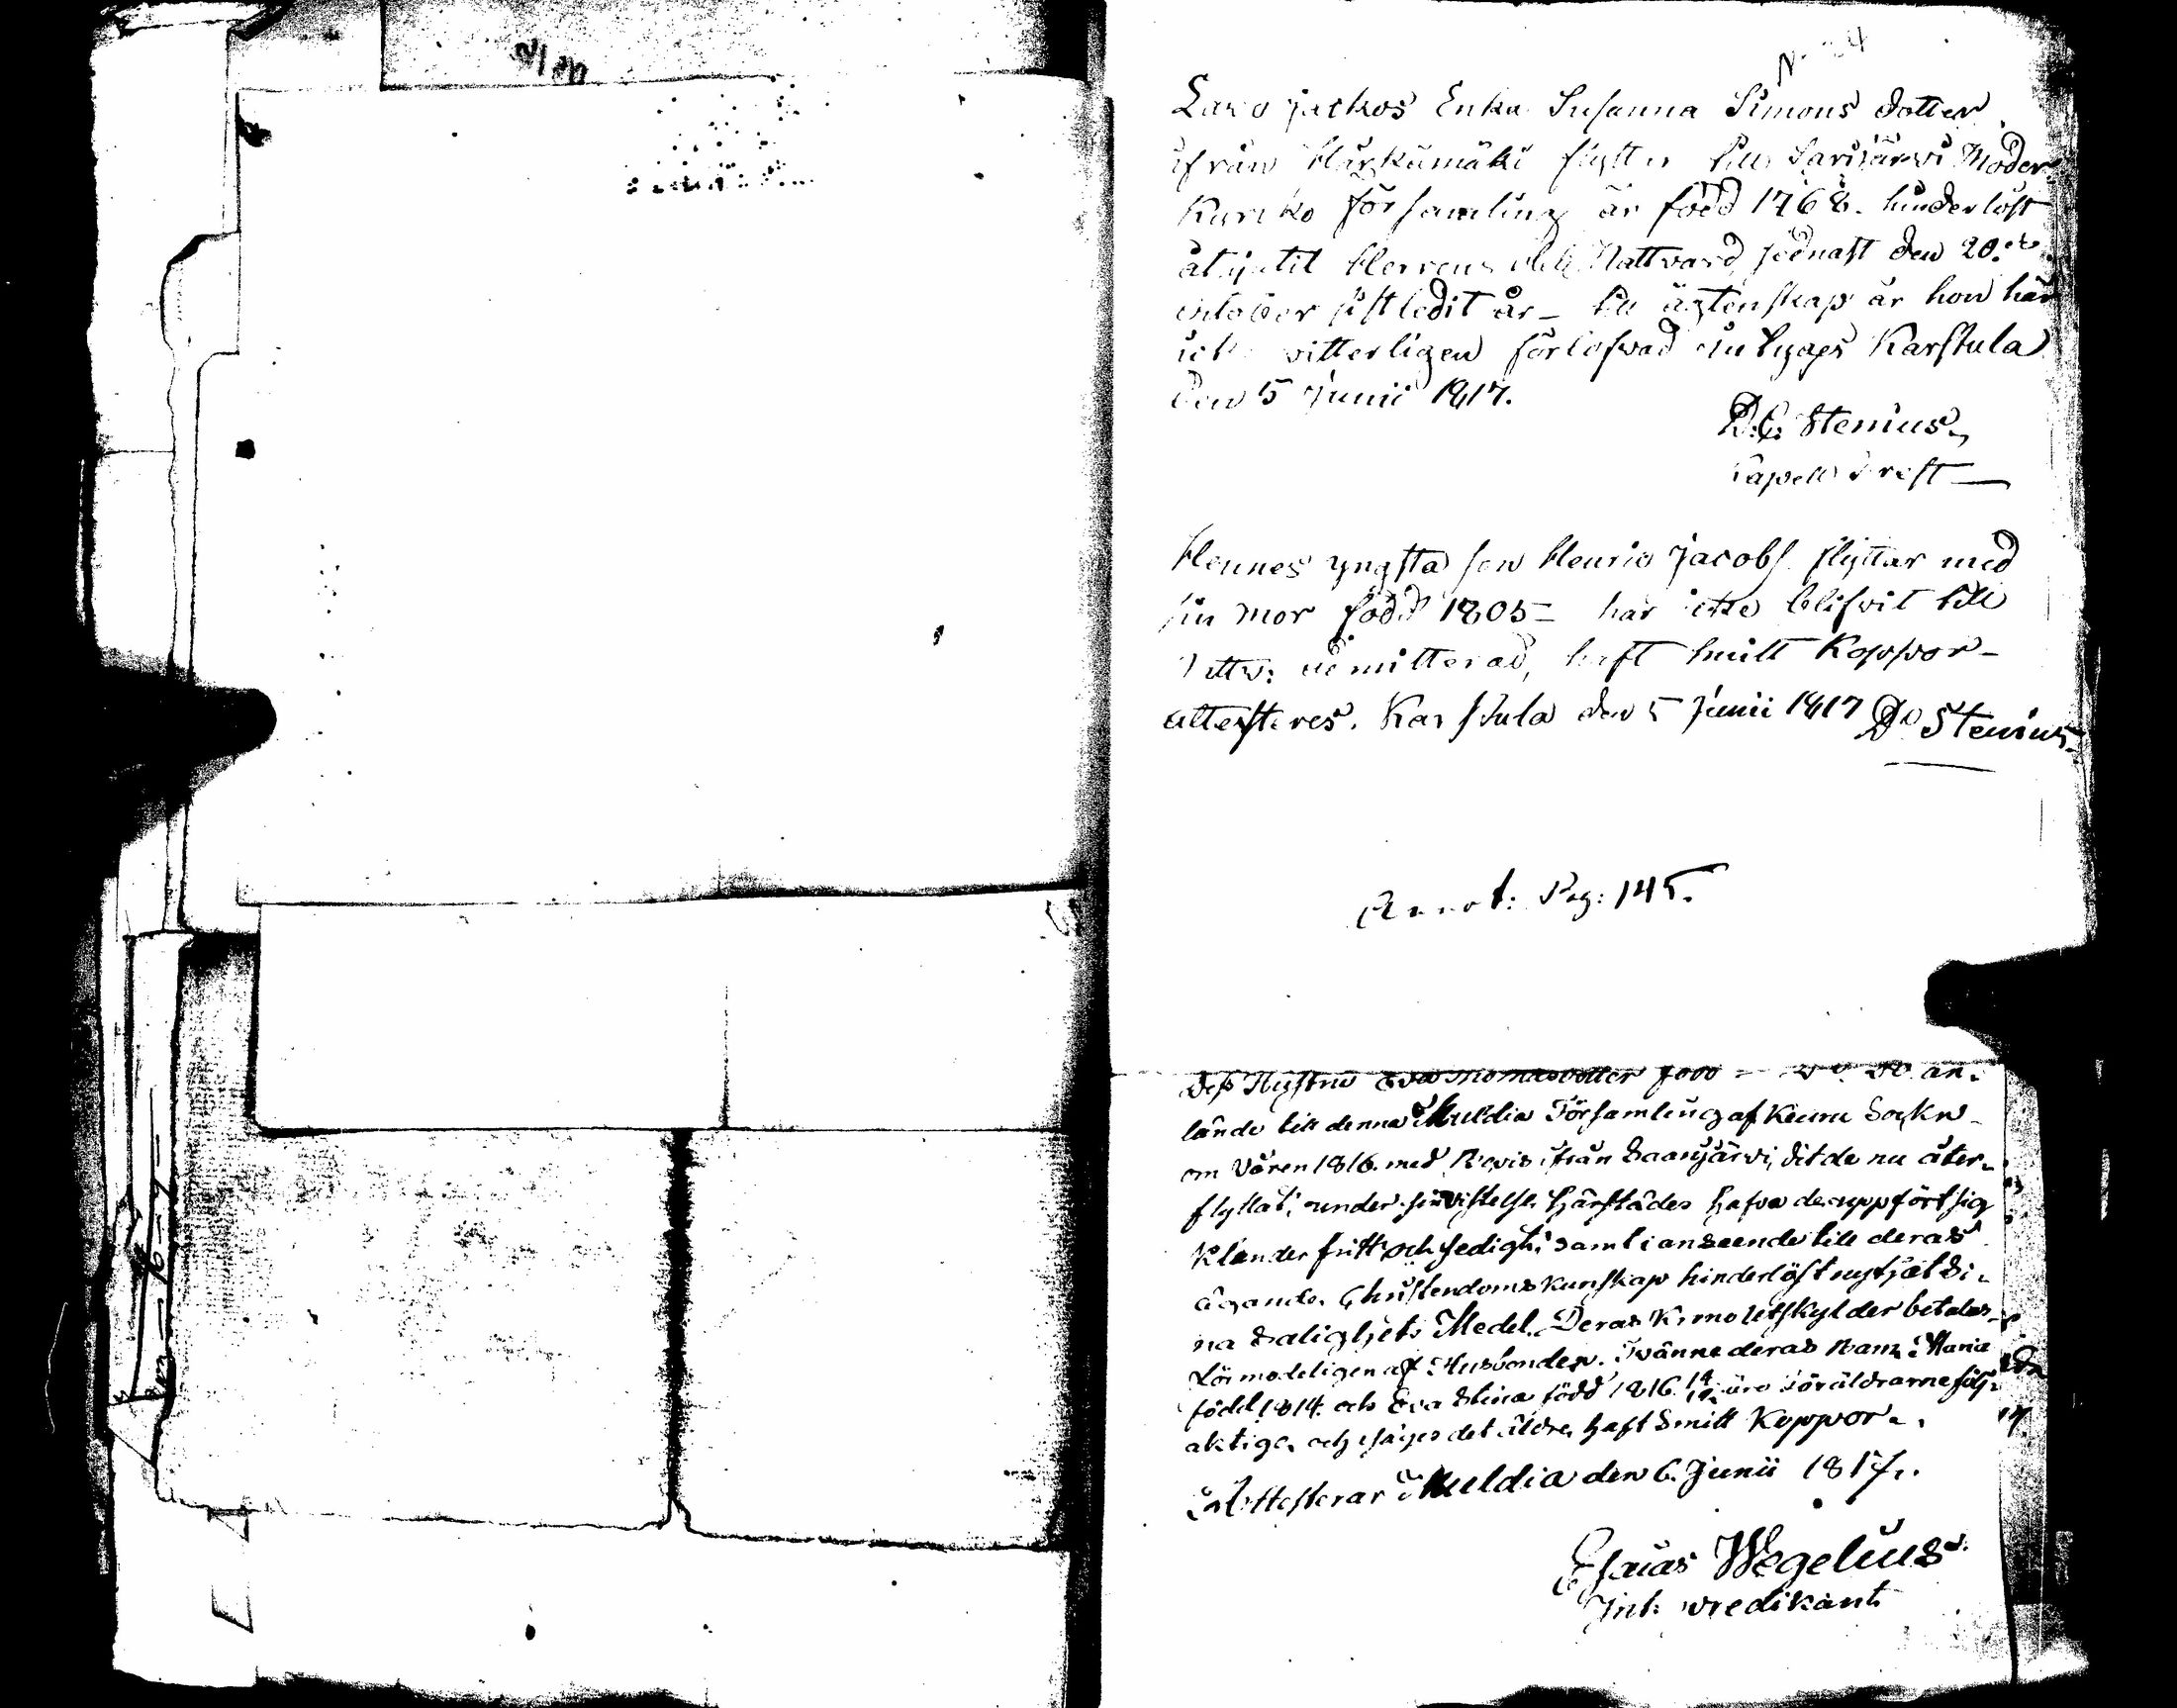 N. 24
Enka Susanna Simons dotter
ifrån Härkümäki flytter till Sarijärvi Moder
Kyrko församling är född 1768. hinderlöst
Herrens Nattvard sednast den 20.de
october sistledit år - till ägtenskap är hon här
vitterligen förlofvad intygas Karstula
den 5 Junii 1817.
D.C. Stenius
Capells Prest
Hennes yngsta son Henric Jacobs. flyttar med
sin mor född 1805 - har icke blifvit till
Nattv: admitterad, haft smitt Koppor -
attesteres. Karstula den 5 Junii 1817 D. Stenius
Annot: Pag: 145.
Dess Hustru Eva Thomasdotter född an-
lände till denna Muldia Församling af Keuru Sockn
om Våren 1816. med Bevis ifrån Saarijärvi, dit de nu åter-
flyttat; under sin vistelse härstädes hafva de uppfört sig
Klanderfritt och sedigt, samt i anseende till deras
ägande Christendomskunskap hinderlöst nytjat di-
na Salighets Medel. Deras Krono Utskylder betalas
förmodeligen af Husbonden. Tvänne deras Barn: Maria
född 1814. och Eva Stina född 1816 äro Föräldrarne följ-
aktige, och säges det äldre haft Smitt Koppor.
Attesterar Muldia den 6. Junii 1817.
Esaias Wegelius
Predikant